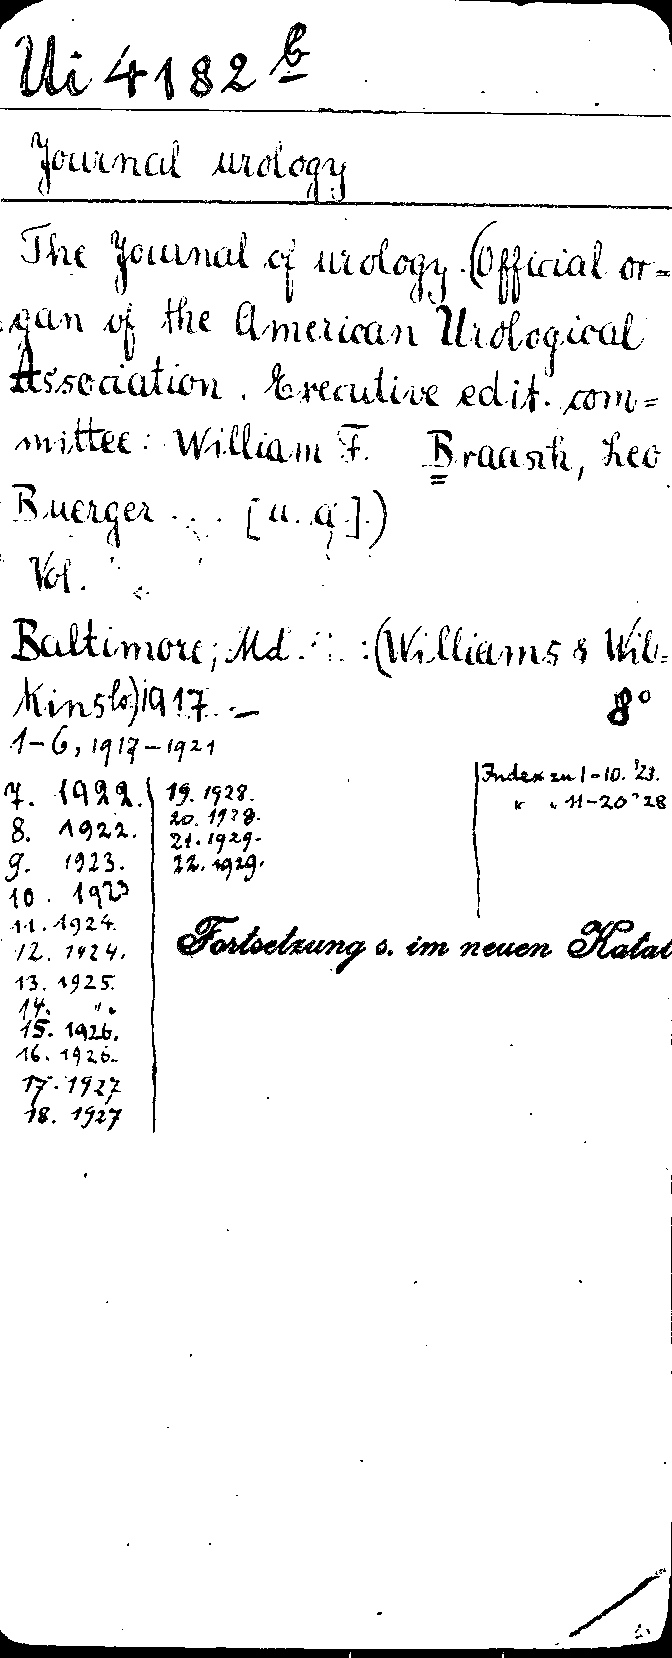 Ui 4182 b
Journal urology
The Journal of urology. (Official or=
gan of the American Urological
Association. Executive edit. com=
mittee: William F. Braasch, Leo
Buerger ... [u. a.].)
Vol.
Baltimore, Md. : (Williams & Wil=
kins Co) 1917 –
8°
1-6, 1917-1921
7. 1922.
8. 1922.
9. 1923.
10. 1923
11. 1924.
12. 1924.
13. 1925.
14. "
15. 1926.
16. 1926.
17. 1927
18. 1927
19. 1928.
20. 1928.
21. 1929.
22. 1929.
Index zu 1-10. '23.
" " 11-20 '28
Fortsetzung s. im neuen Katal